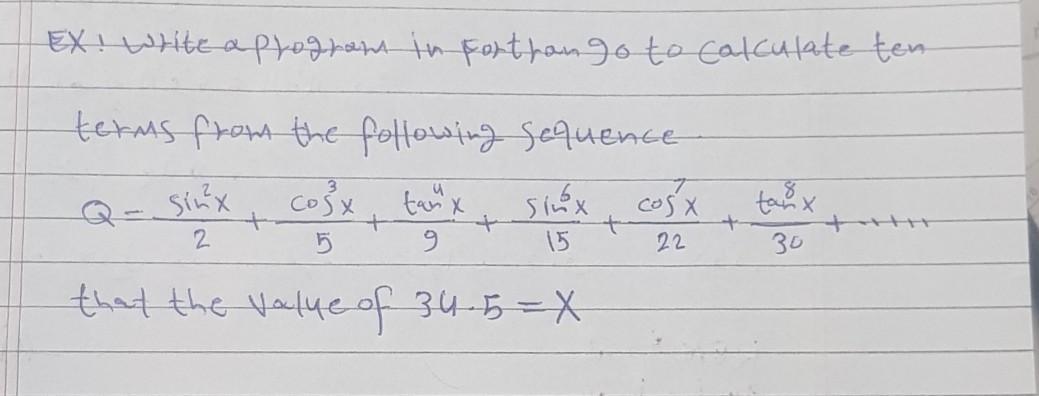 EX: Write a program in Fortran 90 to calculate ten
terms from the following sequence
Q = sin²x/2 + cos³x/5 + tan⁴x/9 + sin⁶x/15 + cos⁷x/22 + tan⁸x/30 + ......
that the value of 34.5 = X